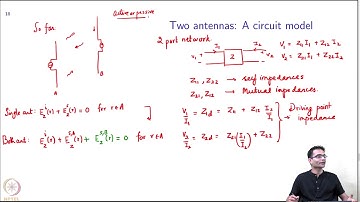 18
Active or passive
Two antennas: A circuit model
So far
2 port network
I₁ I₂
V₁ Z V₂
V₁ = Z₁₁ I₁ + Z₁₂ I₂
V₂ = Z₂₁ I₁ + Z₂₂ I₂
A
B
Z₁₁, Z₂₂ → self impedances
Z₂₁, Z₁₂ → Mutual impedances.
Single ant: E_z^i(r) + E_z^s(r) = 0 for r∈A
V₁/I₁ = Z₁d = Z₁₁ + Z₁₂ I₂/I₁
Driving point impedance
Both ant: E_z^i(r) + E_z^{s,A}(r) + E_z^{s,B}(r) = 0 for r∈A
V₂/I₂ = Z₂d = Z₂₁(I₁/I₂) + Z₂₂
NPTEL